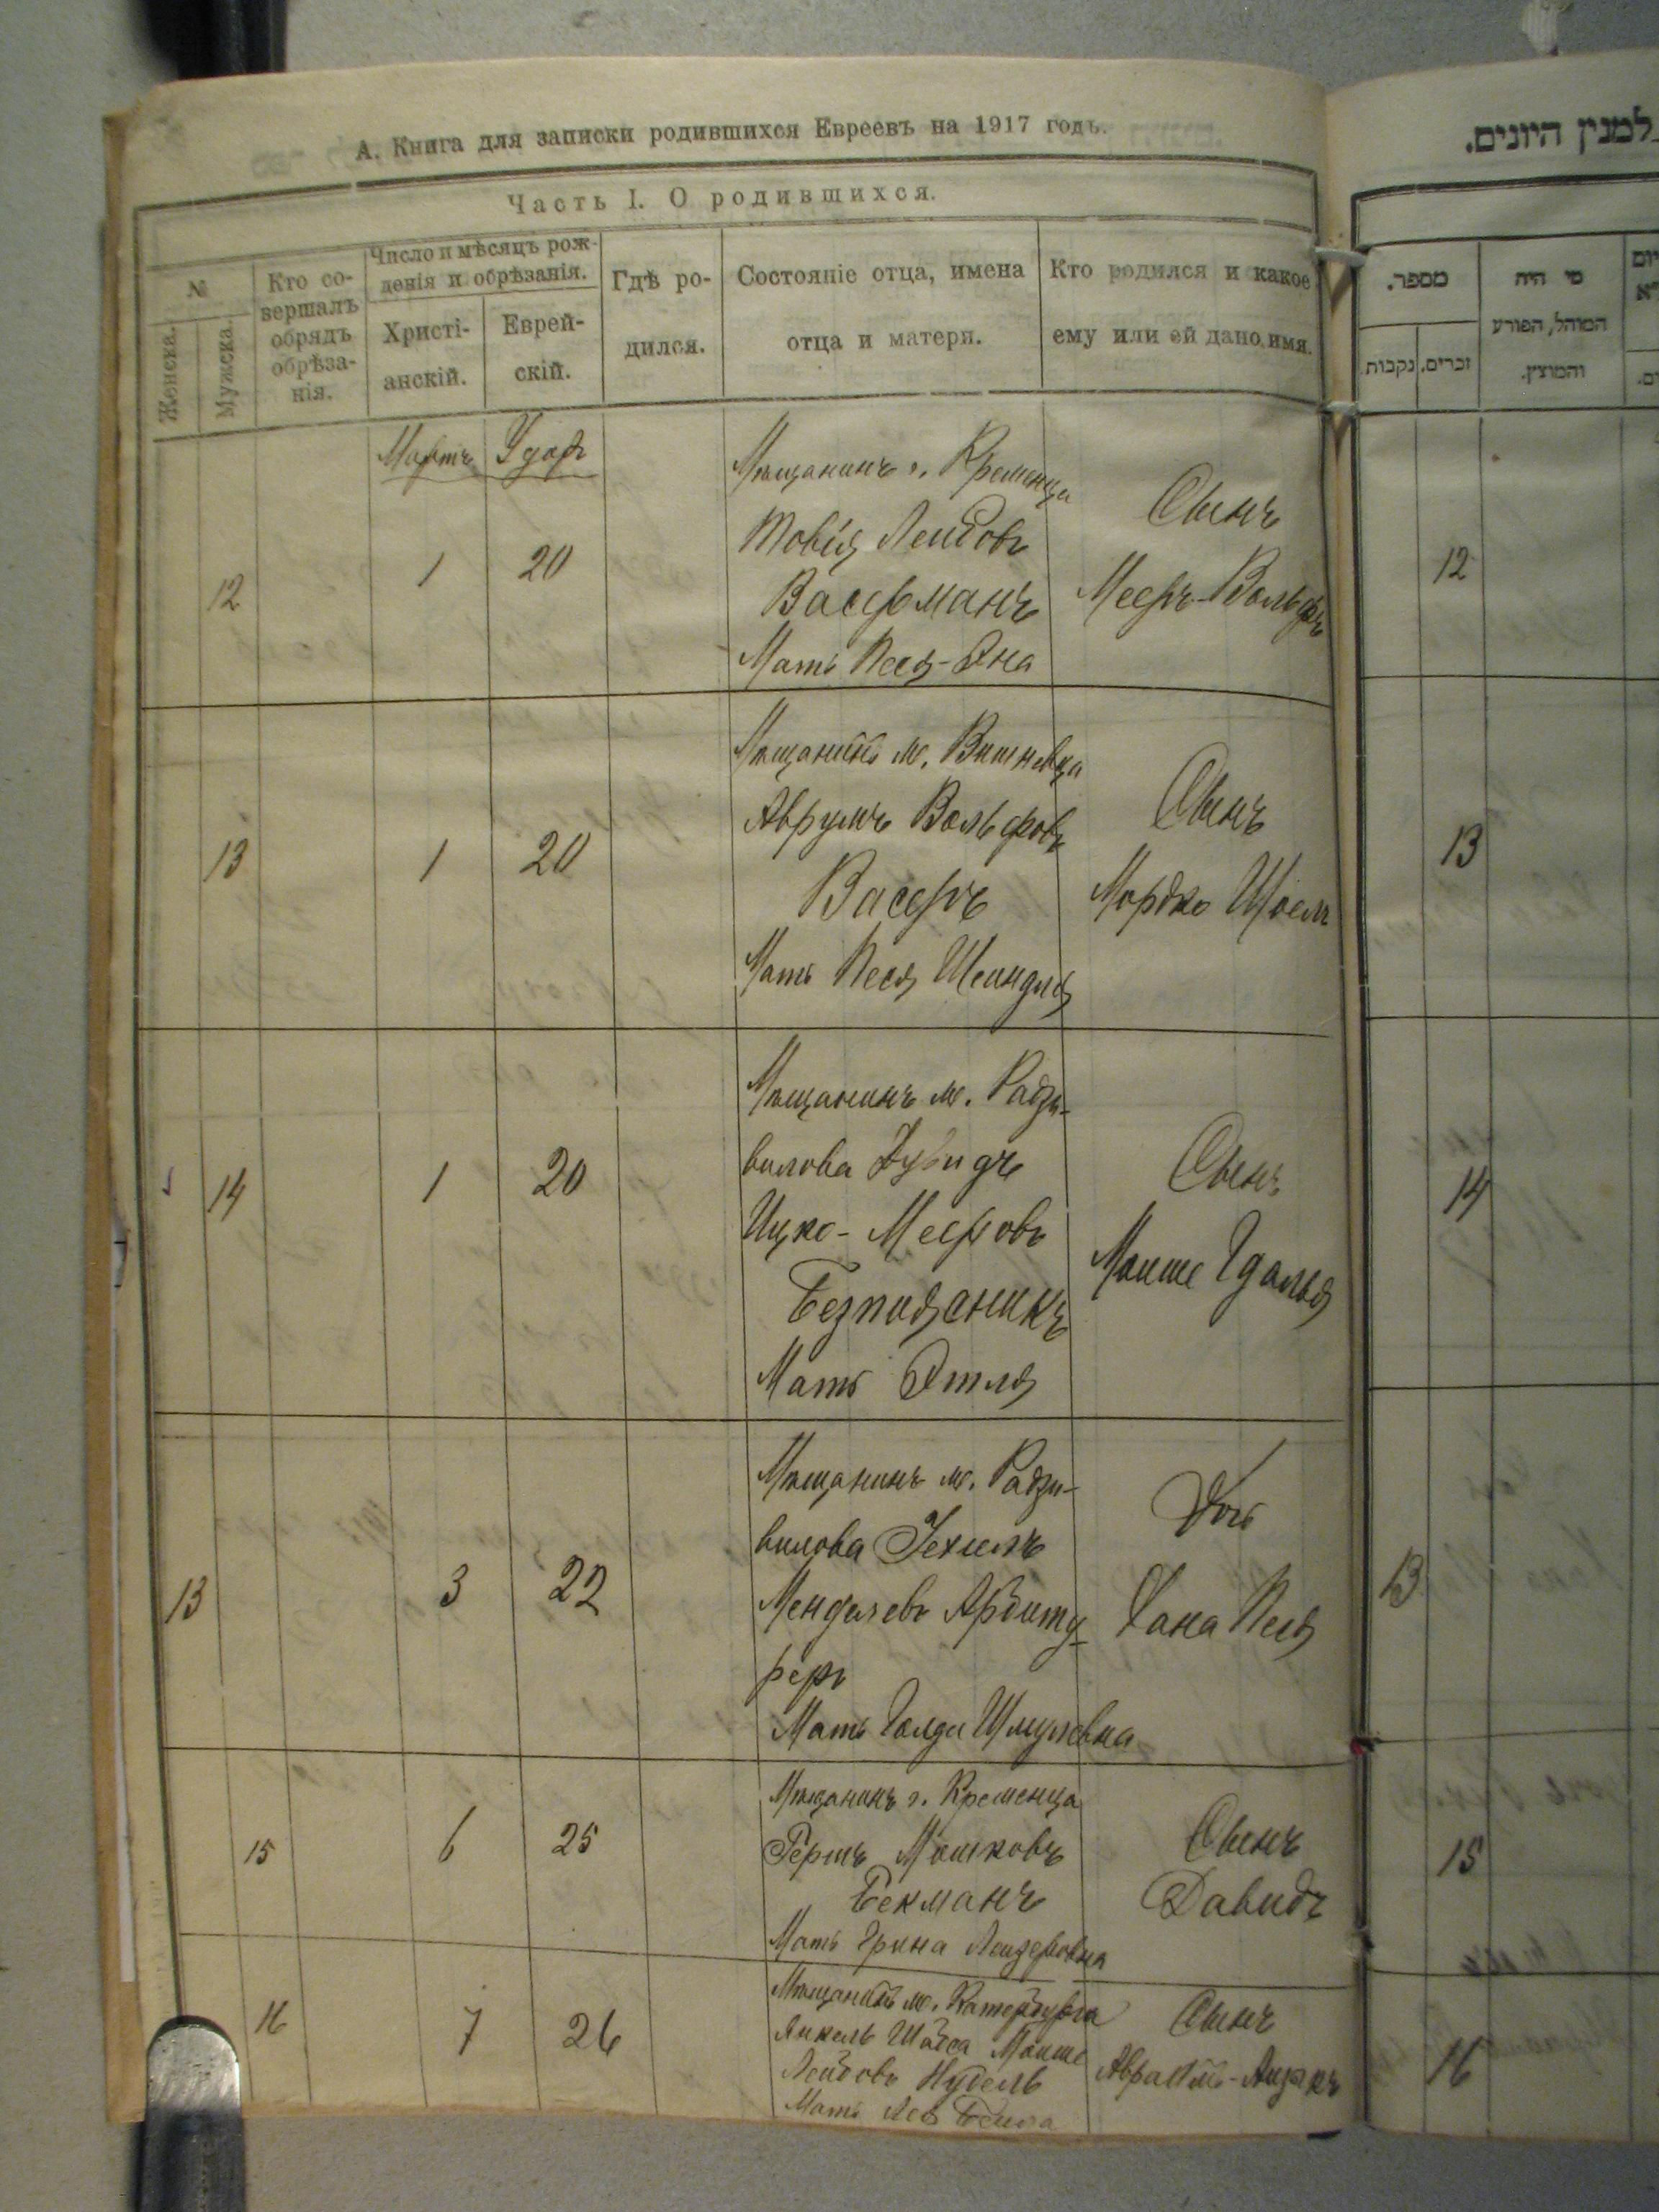 А. Книга для записки родившихся Евреевъ на 1917 годъ.
Часть I. О родившихся.
№
Женска.
Мужска.
Кто со-
вершалъ
обрядъ
обрѣза-
нія.
Число и мѣсяцъ рож-
денія и обрѣзанія.
Христі-
анскій.
Еврей-
скій.
Гдѣ ро-
дился.
Состояніе отца, имена
отца и матери.
Кто родился и какое
ему или ей дано имя.
Мартъ
12
1
20
Мѣщанинъ г. Кременца
Товія Лейбовъ
Вассерманъ
Мать Песя-Эна
Сынъ
Мееръ-Вольфъ
13
1
20
Мѣщанинъ м. Вишневца
Аврумъ Вольфовъ
Васеръ
Мать Песя Шейндля
Сынъ
Мордко Шоель
14
1
20
Мѣщанинъ м. Радзи-
вилова Дувидъ
Ицко-Мееровъ
Безпоясникъ
Мать Этля
Сынъ
Мойше Гдалья
13
3
22
Мѣщанинъ м. Радзи-
вилова Іехиель
Менделевъ Арбиту-
реръ
Мать Голда Шмулевна
Дочь
Хана Песя
15
6
25
Мѣщанинъ г. Кременца
Гершъ Мошковъ
Бекманъ
Мать Лейзеровна
Сынъ
Давидъ
16
7
26
Мѣщанинъ м. Катербурга
Янкель Мойше
Лейбовъ Нудель
Мать
Сынъ
למנין היונים.
מספר.
זכרים.
נקבות
מי היה
המוהל, הפורע
והמוצץ.
12
13
14
13
15
16